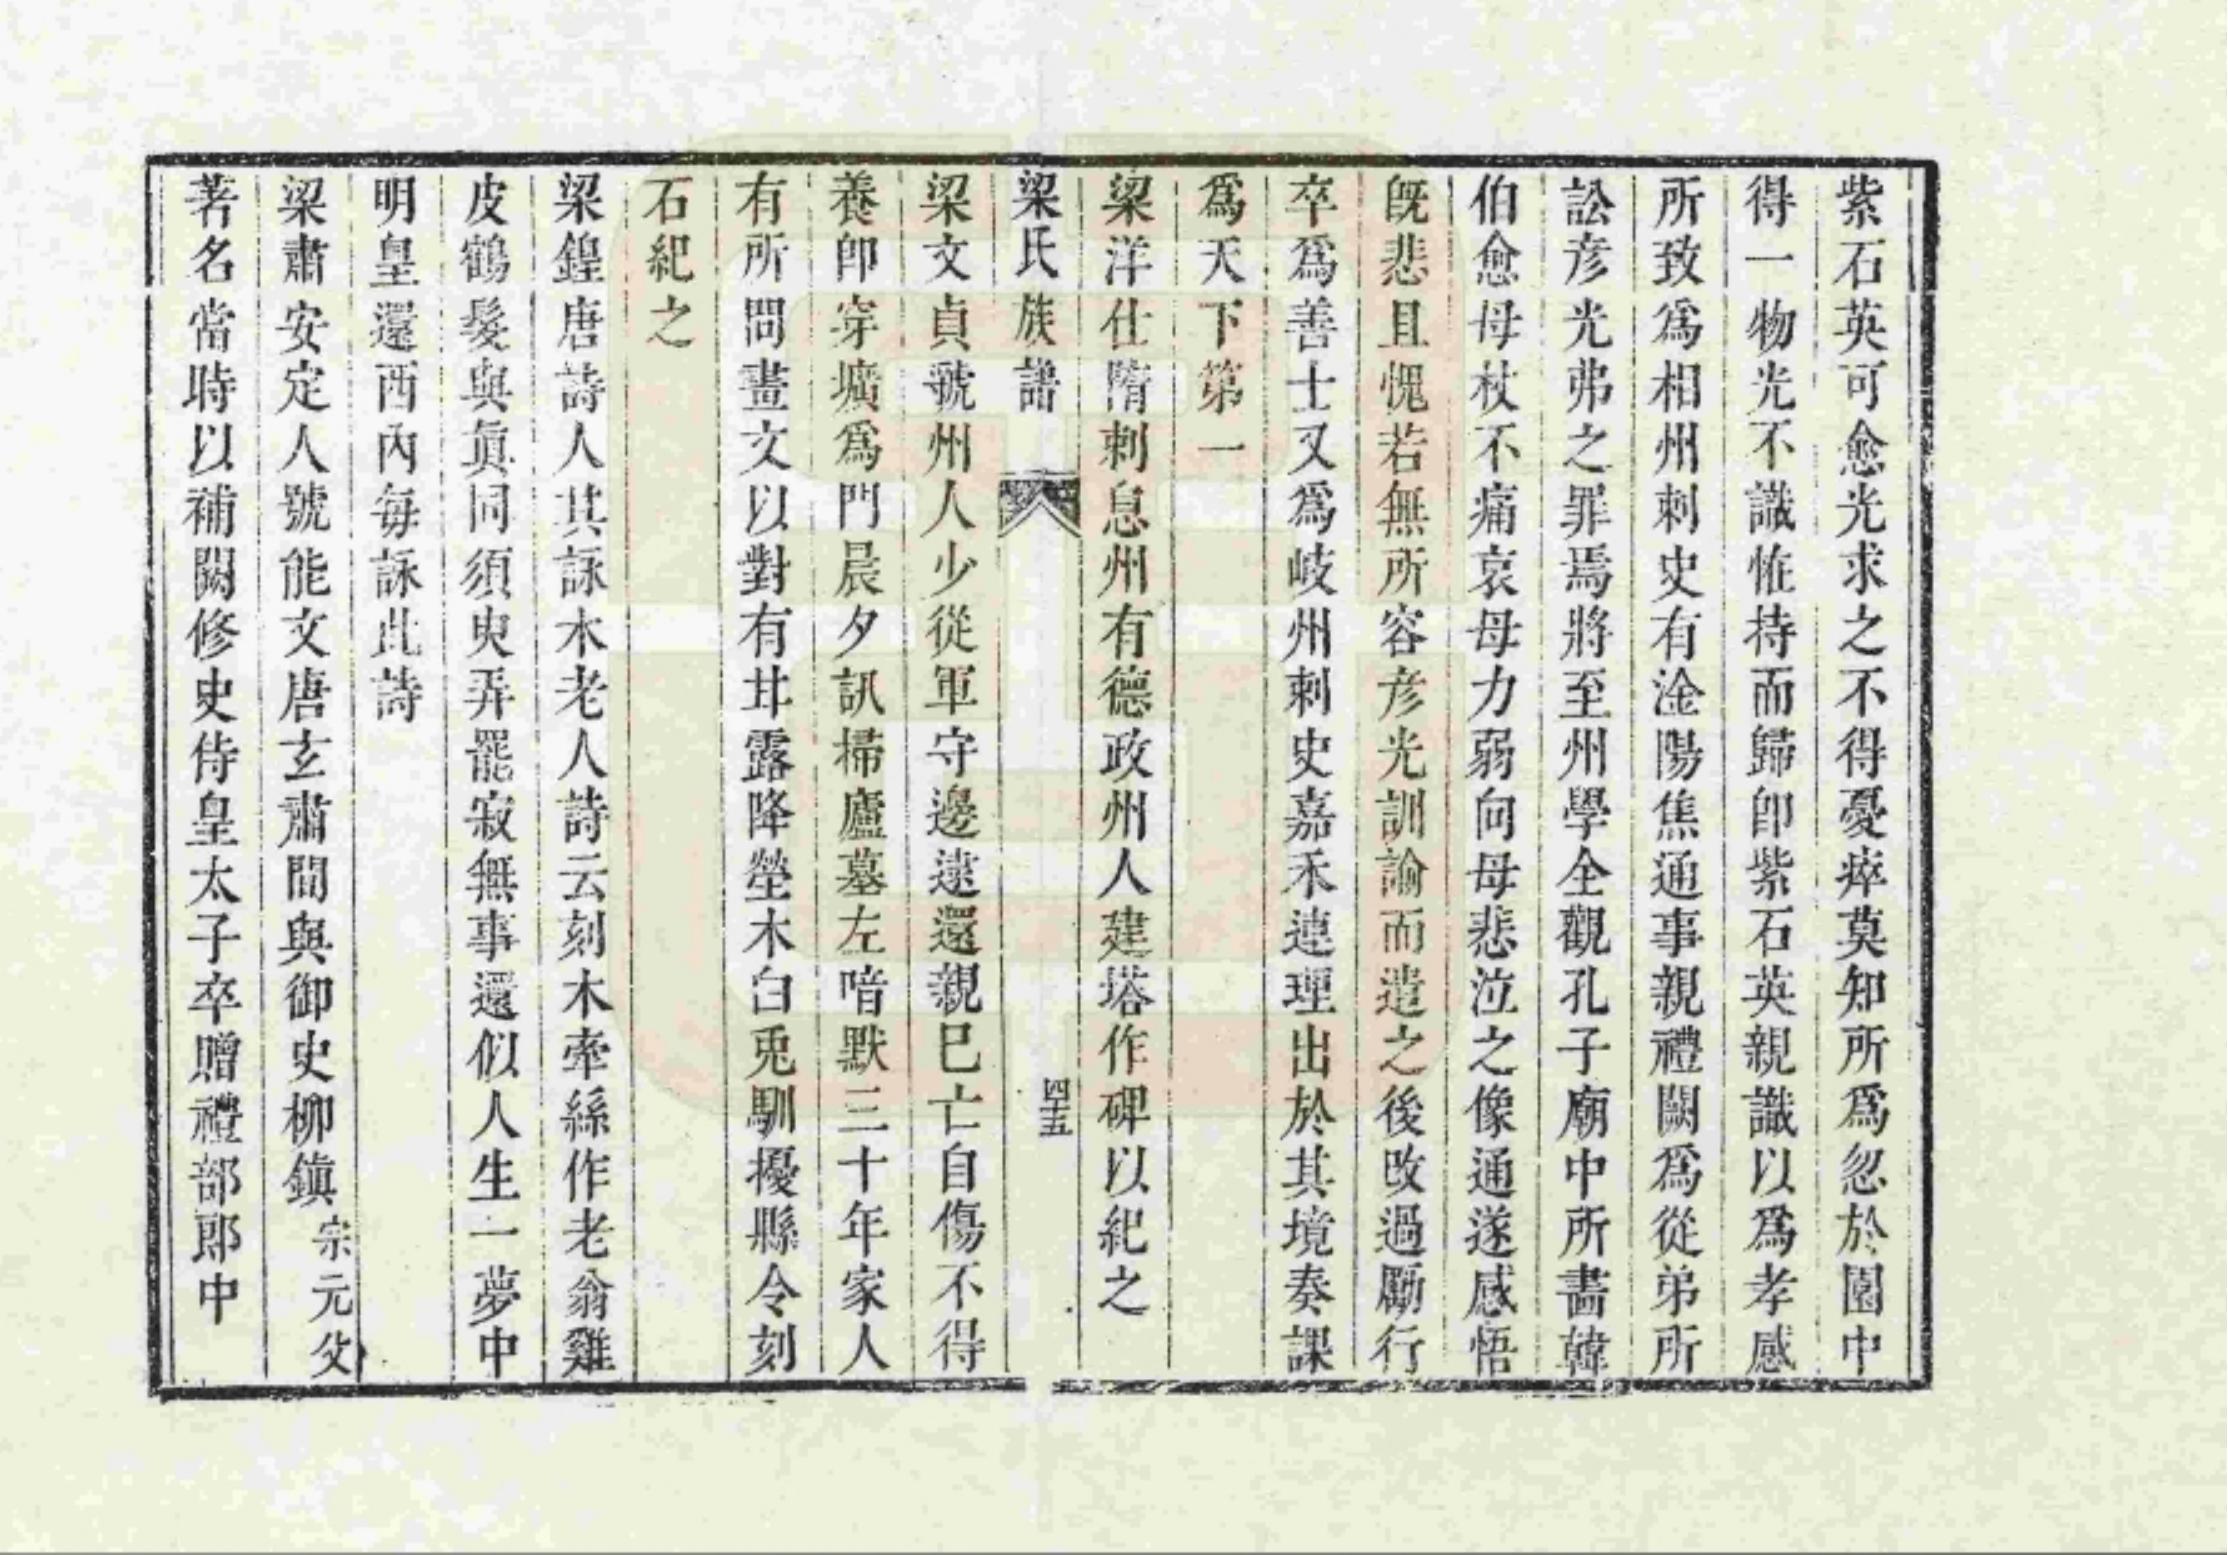 紫石英可愈光求之不得憂瘁莫知所爲忽於園中
得一物光不識恠持而歸卽紫石英親識以爲孝感
所致爲相州刺史有淦陽焦通事親禮闕爲從弟所
訟彥光弗之罪焉將至州學全觀孔子廟中所畵韓
伯愈母杖不痛哀母力弱向母悲泣之像通遂感悟
旣悲且愧若無所容彥光訓諭而遣之後改過勵行
卒爲善士又爲岐州刺史嘉禾連理出於其境奏課
爲天下第一
梁洋仕隋刺息州有德政州人建塔作碑以紀之
梁氏族譜 四十五
梁文貞虢州人少從軍守邊逮還親已亡自傷不得
養卽穿壙爲門晨夕訊掃廬墓左喑默三十年家人
有所問畫文以對有甘露降塋木白兎馴擾縣令刻
石紀之
梁鍠唐詩人其詠木老人詩云刻木牽絲作老翁雞
皮鶴髮與眞同須臾弄罷寂無事還似人生一夢中
明皇還西內每詠此詩
梁肅安定人號能文唐玄肅間與御史柳鎭宗元父
著名當時以補闕修史侍皇太子卒贈禮部郎中